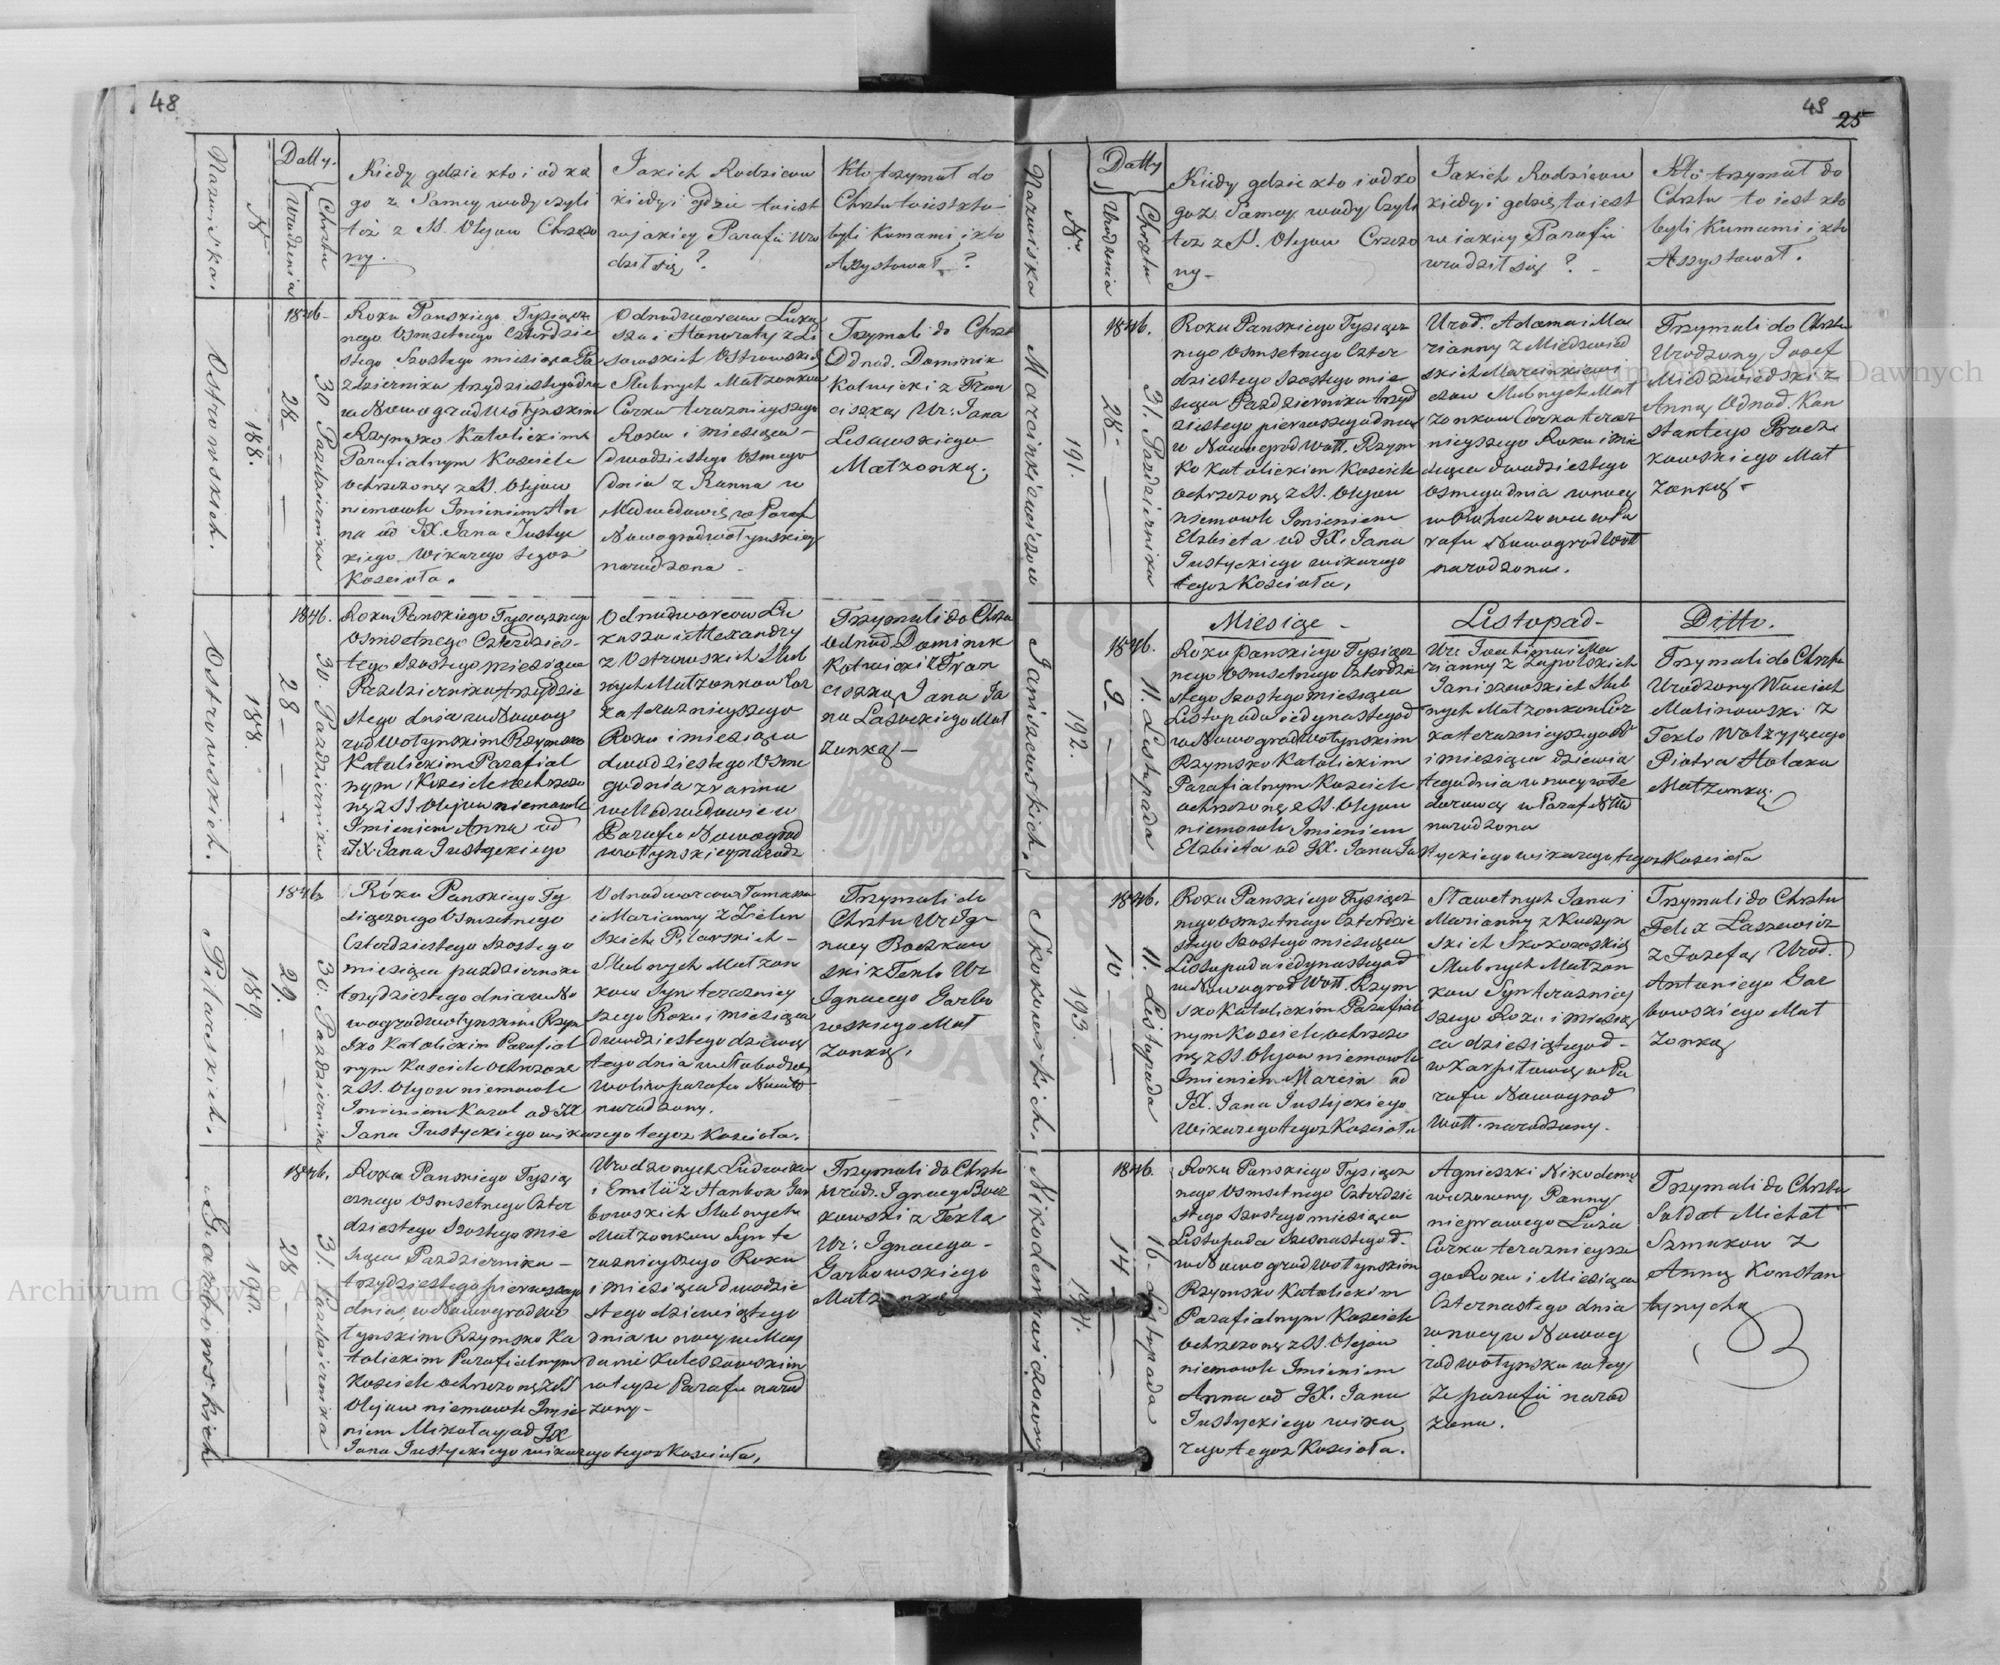 48
Nazwiska.
N.
Datty.
Urodzenia
Chrztu
Kiedy gdzie kto i od ko
go z Samey wody czyli
też z SS. Olejow Chrzczo
ny.
Jakich Rodzicow
kiedy i gdzie to iest
w jakiey Parafii uro
dził się?
Kto trzymał do
Chrztu to iest kto
byli Kumami i kto
Assystował?
Ostrowskich.
188.
1846
28
30 Pazdziernika
Roku Panskiego Tysiącz
nego Osmsetnego Czterdzie
stego Szostego miesiąca Pa
zdziernika trzydziestego dnia
w Nowogradwołynskim
Rzymsko Katolickim
Parafialnym Kosciele
ochrzczone z SS. Olejow
niemowle Imieniem An
na od JX. Jana Justyc
kiego Wikarego tegoż
Koscioła.
Odnodworcow Łuka
sza i Honoraty z Li
sowskich Ostrowskich
Slubnych Małżonkow
Corka teraznieyszego
Roku i miesiąca
dwudziestego Osmego
dnia z Ranna w
Medwedowie w Paraf
Nowogradwołynskiey
narodzona
Trzymali do Chrzt
Odnod. Dominik
Kotwicki z Fran
ciszką Ur. Jana
Lisowskiego
Małżonką.
Ostrowskich.
188.
1846.
28
30. Pazdziernika
Roku Panskiego Tysiącznego
Osmsetnego Czterdzies
tego Szostego miesiąca
Pazdziernika trzydzie
stego dnia w Nowog
rodwołynskim Rzymsko
Katolickim Parafial
nym Kosciele ochrzczo
ne z SS Olejow niemowle
Imieniem Anna od
JX. Jana Justyckiego
Odnodworcow Łu
kasza i Alexandry
z Ostrowskich Slub
nych Małżonkow Cor
ka teraznieyszego
Roku i miesiąca
dwudziestego Osme
go dnia z ranna
w Medwedowie w
Parafii Nowograd
wołynskiey narodz
Trzymali do Chrztu
Odnod Dominik
Kotwicki z Fran
ciszką Jana Ja
na Lasockiego Mał
żonką
Pilarskich.
189.
1846
29.
30. Pazdziernika
Roku Panskiego Ty
siącznego Osmsetnego
Czterdziestego Szostego
miesiąca pazdziernika
trzydziestego dnia w No
wogradwołynskim Rzym
sko Katolickim Parafial
nym Kosciele ochrzczone
z SS. Olejow niemowle
Imieniem Karol od JX
Jana Justyckiego wikarego tegoż Kosciola.
Odnodworcow Tomasza
i Marianny z Zielin
skich Pilarskich
Slubnych Małżon
kow Syn terazniey
szego Roku i miesiąca
dwudziestego dziewią
tego dnia w Słobodzie
w parafii Nowoł
narodzony.
Trzymali do
Chrztu Ur Ig
nacy Boczkow
ski z Teklą Ur
Ignacego Garbo
wskiego Mał
żonką.
Garbowskich
190.
1846.
28
31. Pazdziernika
Roku Panskiego Tysią
cznego Osmsetnego Czter
dziestego Szostego mie
siąca Pazdziernika
trzydziestego pierwszego
dnia w Nowogradwo
łynskim Rzymsko Ka
tolickim Parafialnym
Kosciele ochrzczone z SS
Olejow niemowle Imie
niem Mikołay od JX
Jana Justyckiego wikarego tegoż Kosciola.
Urodzonych Ludwika
i Emilii z Hankow Gar
bowskich Slubnych
Małżonkow Syn te
raznieyszego Roku
i miesiąca dwudzie
stego dziewiątego
dnia w nocy w May
danie Kuleszowskim
w teyże Parafii narod
zony
Trzymali do Chrztu
Urodz. Ignacy Bocz
kowski z Teklą
Ur: Ignacego
Garbowskiego
Małżonką
49
25
Nazwiska
N.
Datty
Urodzenia
Chrztu
Kiedy gdzie kto i od ko
go z Samey wody Czyli
też z SS. Olejow Crzczo
ny
Jakich Rodzicow
kiedy i gdzie to iest
w iakiey Parafii
urodził się?
Kto trzymał do
Chrztu to iest kto
byli Kumami i kto
Assystował.
Marcinkiewiczow
191.
1846.
28
31. Pazdziernika
Roku Panskiego Tysiącz
nego Osmsetnego Czter
dziestego Szostego mie
siąca Pazdziernika trzyd
ziestego pierwszego dnia
w Nowogradwoł. Rzym
sko Katolickim Kosciele
ochrzczone z SS. Olejow
niemowle Imieniem
Elzbieta od JX. Jana
Justyckiego wikarego
tegoż Kosciola.
Urod. Adama i Ma
rianny z Miedzwied
skich Marcinkiewi
czow Slubnych Mał
żonkow Corka teraz
nieyszego Roku i mie
siąca dwudziestego
Osmego dnia w nocy
w Rohaczowie w Pa
rafii Nowogradwoł
narodzona.
Trzymali do Chrztu
Urodzony Jozef
Miedzwiedski z
Anną Odnod. Kon
stantego Bocz
kowskiego Mał
żonką
Miesiąc
Listopad
Ditto.
Janiszewskich.
192.
1846.
9
11. Listopada
Roku Panskiego Tysiącz
nego Osmsetnego Czterdzie
stego Szostego miesiąca
Listopada iedynastego d
w Nowogradwołynskim
Rzymsko Katolickim
Parafialnym Kosciele
ochrzczone z SS. Olejow
niemowle Imieniem
Elzbieta od JX. Jana Justyckiego wikarego tegoż Kosciola
Ur. Joachima i Ma
rianny z Zapolskich
Janiszewskich Slub
nych Małżonkow Cor
ka teraznieyszego R
i miesiąca dziewią
tego dnia w nocy w Fe
dorowcy w Paraf NW
narodzona
Trzymali do Chrztu
Urodzony Woyciech
Malinowski z
Teklą
Piotra Holaka
Małżonką
Skokowskich.
193.
1846.
10
11. Listopada
Roku Panskiego Tysiącz
nego Osmsetnego Czterdzie
stego Szostego miesiąca
Listopada iedynastego d
w Nowogradwoł. Rzym
sko Katolickim Parafial
nym Kosciele ochrzczo
ne z SS Olejow niemowle
Imieniem Marcin od
JX. Jana Justyckiego
Wikarego tegoż Kosciola
Sławetnych Jana i
Marianny z Kuczyn
skich Skokowskich
Slubnych Małżon
kow Syn terazniey
szego Roku i miesią
ca dziesiątego d
w Karpiłowce w Pa
rafii Nowograd
Woł. narodzony.
Trzymali do Chrztu
Felix Łaszewicz
z Jozefą Urod.
Antoniego Gar
bowskiego Mał
żonką
Nikodemowiczowny
194.
1846.
14
16 Listopada
Roku Panskiego Tysiącz
nego Osmsetnego Czterdzie
stego Szostego miesiąca
Listopada Szesnastego d.
w Nowogradwołynskim
Rzymsko Katolickim
Parafialnym Kosciele
ochrzczone z SS. Olejow
niemowle Imieniem
Anna od JX. Jana
Justyckiego wika
rego tegoż Kosciola.
Agnieszki Nikodemo
wiczowny Panny
nieprawego Łoża
Corka teraznieysze
go Roku i Miesiąca
Czternastego dnia
w nocy w Nowog
radwołynsku w tey
że parafii narod
zona.
Trzymali do Chrztu
Soldat Michał
Szmakow z
Anną Konstan
tynychą
Archiwum Główne Akt Dawnych
Archiwum Główne Akt Dawnych